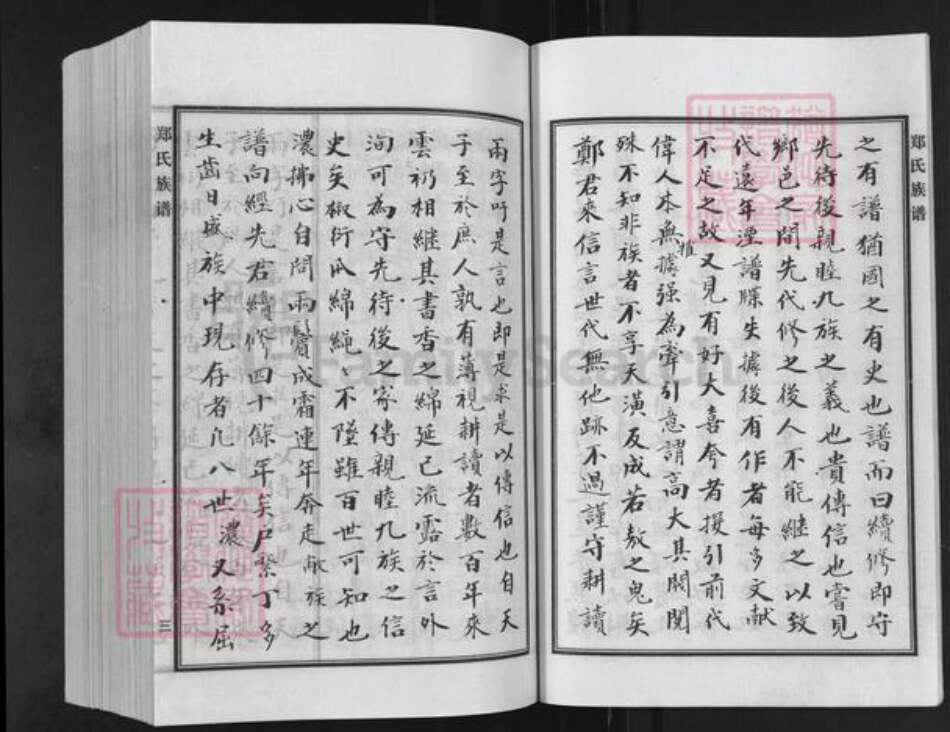 郑氏族谱
之有譜猶國之有史也譜而曰續修即守
先待後親睦九族之義也貴傳信也嘗見
鄉邑之間先代修之後人不能継之以致
代遠年湮譜牒失據後有作者每多文献
不足之故又見有好大喜夸者援引前代
偉人本無據强為牽引意謂高大其閥閱
推
殊不知非族者不享天潢反成若敖之鬼矣
鄭君來信言世代無他跡不過謹守耕讀
兩字吁是言也即是求是以傳信也自天
子至於庶人孰有薄視耕讀者數百年來
雲礽相継其書香之綿延已流露於言外
洵可為守先待後之家傳親睦九族之信
史矣椒衍瓜綿繩〻不墜雖百世可知也
濃拂心自問兩鬢成霜連年奔走敝族之
譜向經先君續修四十餘年矣戶繁丁多
生齒日盛族中現存者凡八世濃又系屈
郑氏族谱
三
FamilySearch